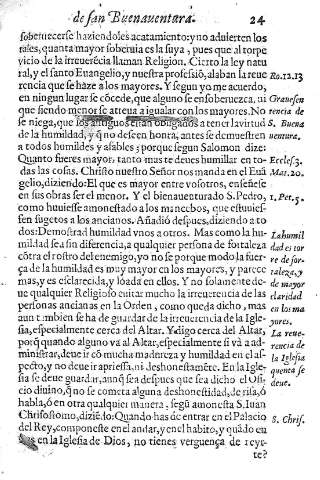 de san Buenauentura. 24
soberuecerse haziendoles acatamiento: y no aduierten los
tales, quanta mayor soberuia es la suya, pues que al torpe
vicio de la irreuerẽcia llaman Religion. Cierto la ley natu
ral, y el santo Euangelio, y nuestra professiõ, alaban la reue
rencia que se haze a los mayores. Y segun yo me acuerdo,
en ningun lugar se cõcede, que alguno se ensoberuezca, ni
que siendo menor se atreua a igualar con los mayores. No
se niega, que los antiguos estan obligados a tener la virtud
de la humildad, y q̃ no deseen honra, antes se demuestren
a todos humildes y afables; porque segun Salomon dize:
Quanto fueres mayor, tanto mas te deues humillar en to-
das las cosas. Christo nuestro Señor nos manda en el Euã
gelio, diziendo: El que es mayor entre vosotros, enseñese
en sus obras ser el menor. Y el bienauenturado S. Pedro,
como huuiesse amonestado a los mancebos, que estuuies-
sen sugetos a los ancianos. Añadio despues, diziendo a to-
dos: Demostrad humildad vnos a otros. Mas como la hu-
mildad sea sin diferencia, a qualquier persona de fortaleza
cõtra el rostro del enemigo, yo no se porque modo la fuer-
ça de la humildad es muy mayor en los mayores, y parece
mas, y es esclarecida, y loada en ellos. Y no solamente de-
ue qualquier Religioso euitar mucho la irreuerencia de las
personas ancianas en la Orden, como queda dicho, mas
aun tambien se ha de guardar de la irreuerencia de la Igle-
sia, especialmente cerca del Altar. Y digo cerca del Altar,
porq̃ quando alguno va al Altar, especialmente si va a ad-
ministrar, deue ir cõ mucha madureza y humildad en el as-
pecto, y no deue ir apriessa, ni deshonestamẽte. En la Igle-
sia se deue guardar, aunq̃ sea despues que sea dicho el Ofi-
cio diuino, q̃ no se cometa alguna deshonestidad, de risa, ò
habla, ò en otra qualquier manera, segũ amonesta S. Iuan
Chrisostomo, diziẽdo: Quando has de entrar en el Palacio
del Rey, componeste en el andar, y en el habito, y quãdo en
tras en la Iglesia de Dios, no tienes verguença de reyr-
te?
Ro. 12. 13
S. Buena
uentura.
Eccles. 3.
Mar. 20.
1. Pet. 5.
La humil
dad es tor
re de for-
taleza, y
de mayor
claridad
en los ma
yores.
La reue-
rencia de
la Iglesia
deue.
S. Chris.